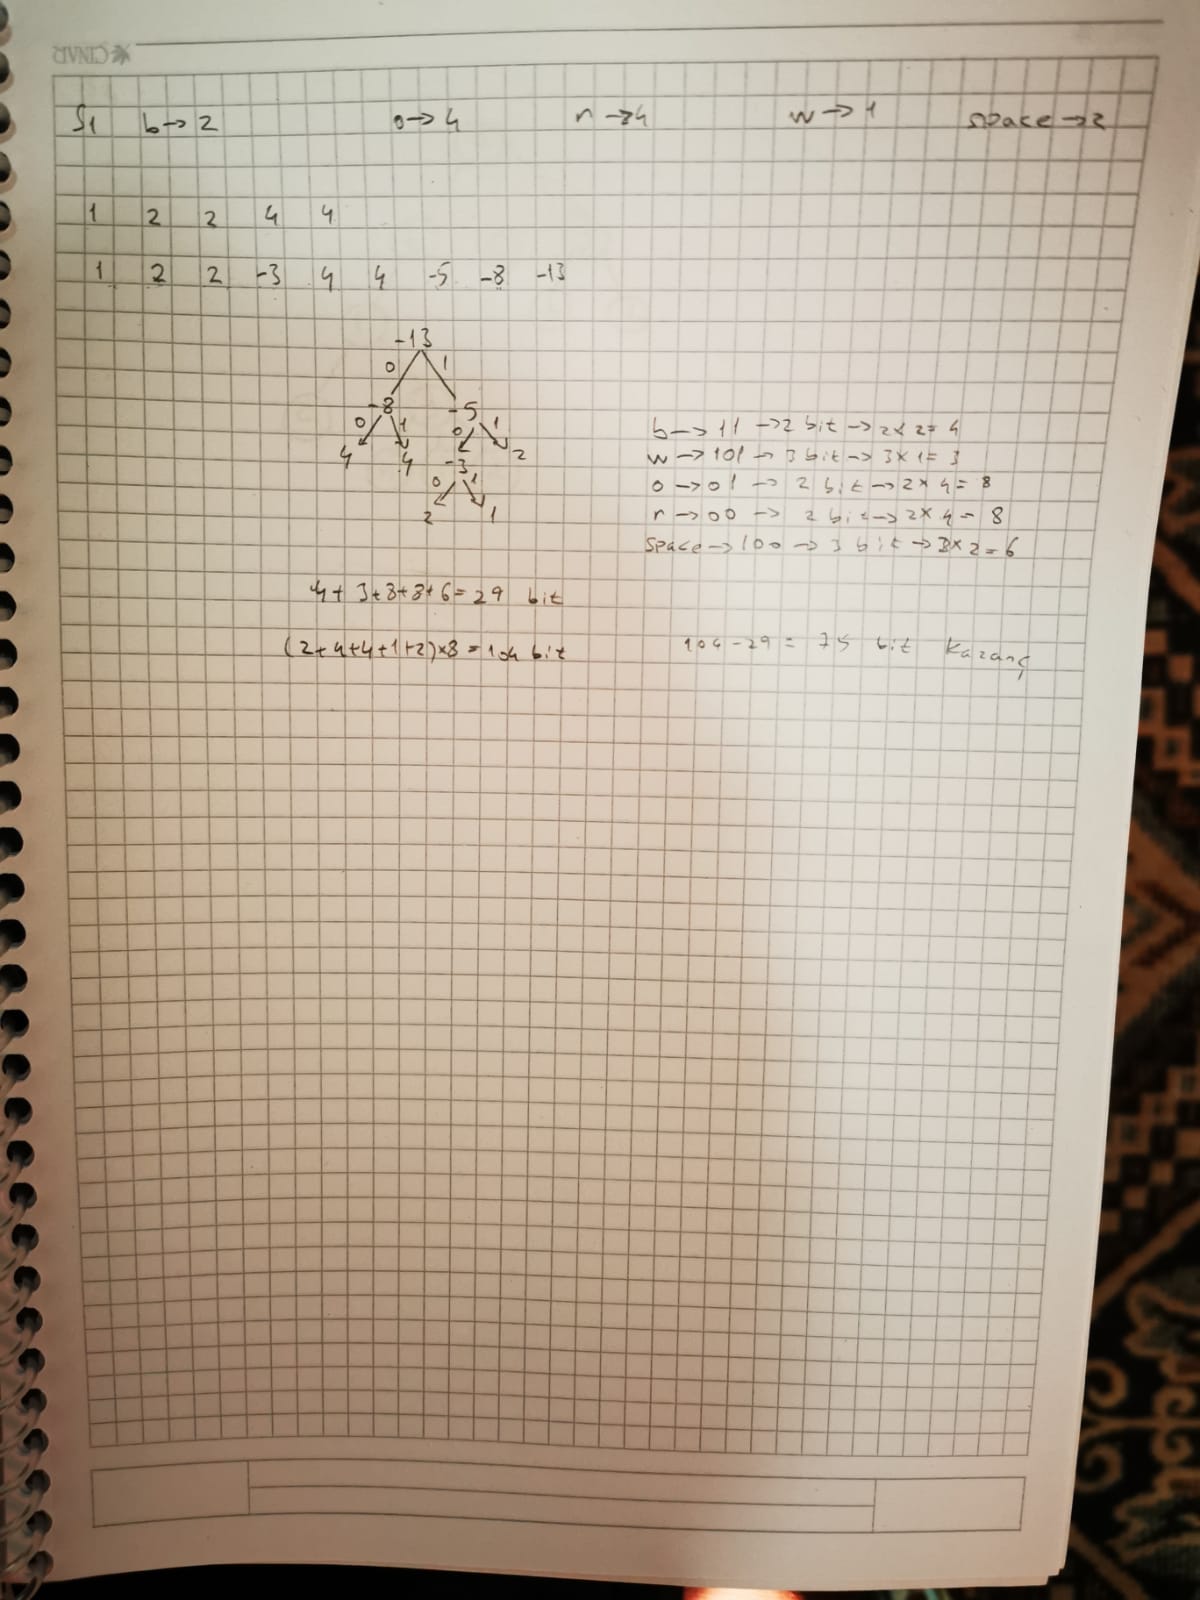 ÇINAR
S1 b→2 o→4 r→4 w→1 space→2
1 2 2 4 4
1 2 2 -3 4 4 -5 -8 -13
-13
0 1
-8 -5
0 1 0 1
4 4 -3 2
0 1
2 1
b→11→2 bit→2x2=4
w→101→3 bit→3x1=3
o→01→2 bit→2x4=8
r→00→2 bit→2x4=8
space→100→3 bit→3x2=6
4+3+8+8+6=29 bit
(2+4+4+1+2)x8=104 bit 104-29=75 bit kazanç